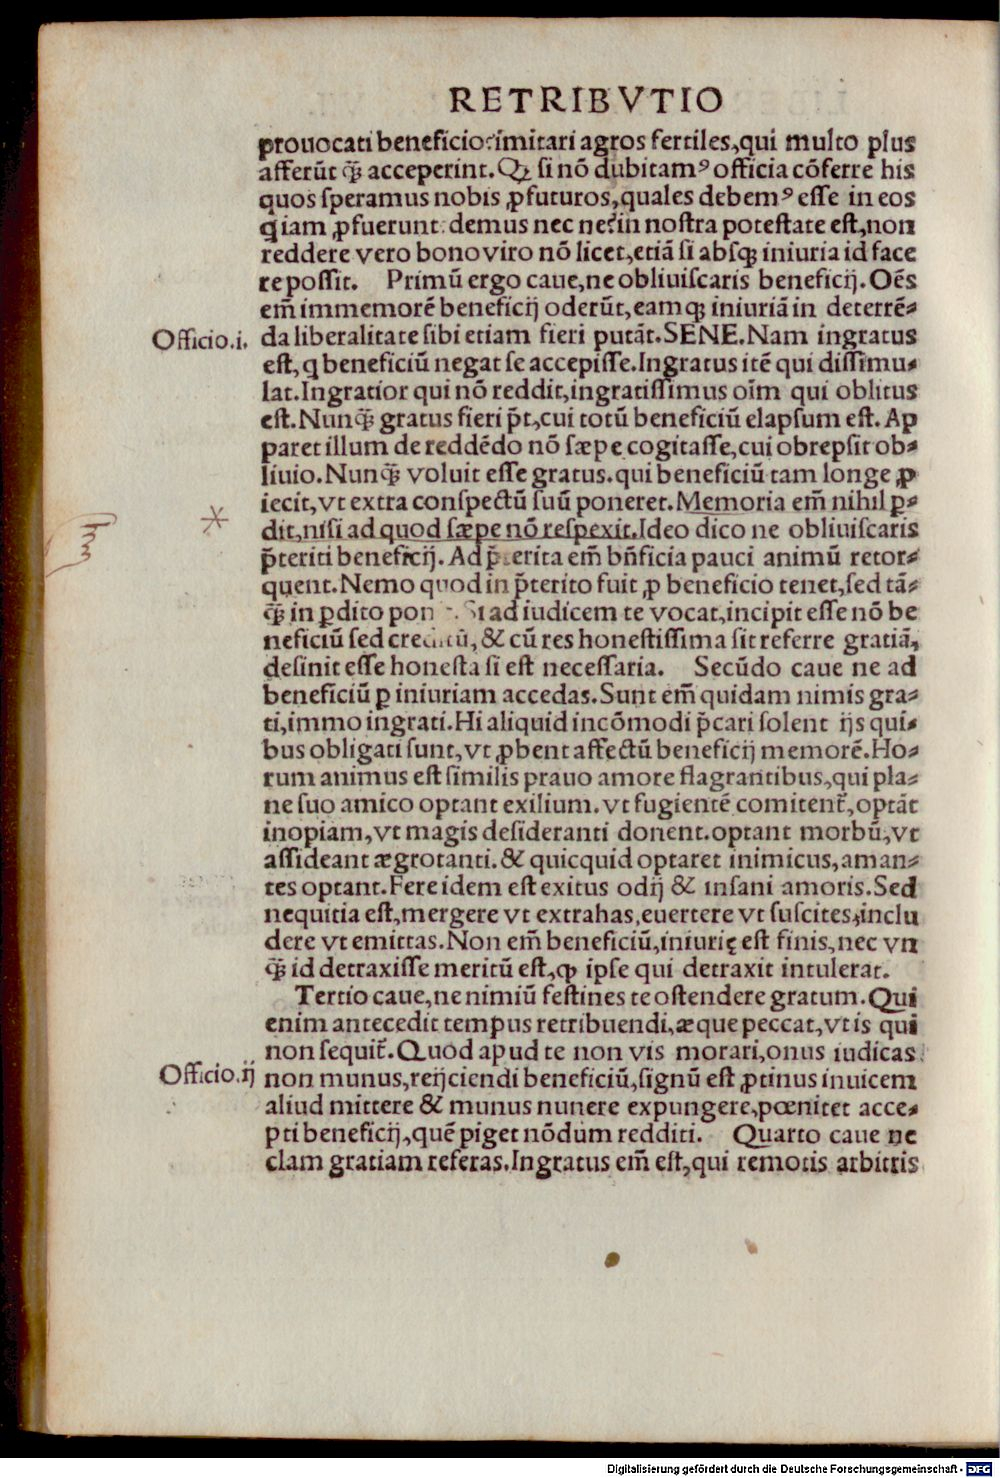 RETRIBVTIO
prouocati beneficio?imitari agros fertiles,qui multo plus
afferūt q̃ acceperint. Qꝫ si nō dubitamꝰ officia cōferre his
quos speramus nobis ꝓfuturos,quales debemꝰ esse in eos
q iam ꝓfuerunt: demus nec ne?in nostra potestate est,non
reddere vero bono viro nō licet,etiā si absqꝫ iniuria id face
re possit. Primū ergo caue,ne obliuiscaris beneficij. Oēs
em̄ immemorē beneficij oderūt,eamqꝫ iniuriā in deterrē-
Officio.i. da liberalitate sibi etiam fieri putāt. SENE. Nam ingratus
est, q beneficiū negat se accepisse. Ingratus itē qui dissimu-
lat. Ingratior qui nō reddit,ingratissimus oīm qui oblitus
est. Nunq̃ gratus fieri p̄t,cui totū beneficiū elapsum est. Ap
paret illum de reddēdo nō sæpe cogitasse,cui obrepsit ob-
liuio. Nunq̃ voluit esse gratus. qui beneficiū tam longe ꝓ
iecit,vt extra conspectū suū poneret. Memoria em̄ nihil ꝑ-
dit,nisi ad quod sæpe nō respexit. Ideo dico ne obliuiscaris
p̄teriti beneficij. Ad p̄terita em̄ bn̄ficia pauci animū retor-
quent. Nemo quod in p̄terito fuit ꝓ beneficio tenet,sed tā-
q̃ in ꝑdito pon ad iudicem te vocat,incipit esse nō be
neficiū sed creditū,& cū res honestissima sit referre gratiā,
desinit esse honesta si est necessaria. Secūdo caue ne ad
beneficiū ꝑ iniuriam accedas. Sunt em̄ quidam nimis gra-
ti,immo ingrati. Hi aliquid incōmodi p̄cari solent ijs qui-
bus obligati sunt,vt ꝓbent affectū beneficij memorē. Ho-
rum animus est similis prauo amore flagrantibus,qui pla-
ne suo amico optant exilium. vt fugientē comitent̄,optāt
inopiam,vt magis desideranti donent. optant morbū,vt
assideant ægrotanti. & quicquid optaret inimicus,aman-
tes optant. Fere idem est exitus odij & insani amoris. Sed
nequitia est,mergere vt extrahas,euertere vt suscites,inclu
dere vt emittas. Non em̄ beneficiū,iniurię est finis,nec vn
q̃ id detraxisse meritū est,ꝙ ipse qui detraxit intulerat.
Tertio caue,ne nimiū festines te ostendere gratum. Qui
enim antecedit tempus retribuendi,æque peccat,vt is qui
non sequit̄. Quod apud te non vis morari,onus iudicas
Officio.ij non munus,reijciendi beneficiū,signū est ꝓtinus inuicem
aliud mittere & munus nunere expungere,pœnitet acce-
pti beneficij,quē piget nōdum redditi. Quarto caue ne
clam gratiam referas. Ingratus em̄ est,qui remotis arbitris
Digitalisierung gefördert durch die Deutsche Forschungsgemeinschaft - DFG